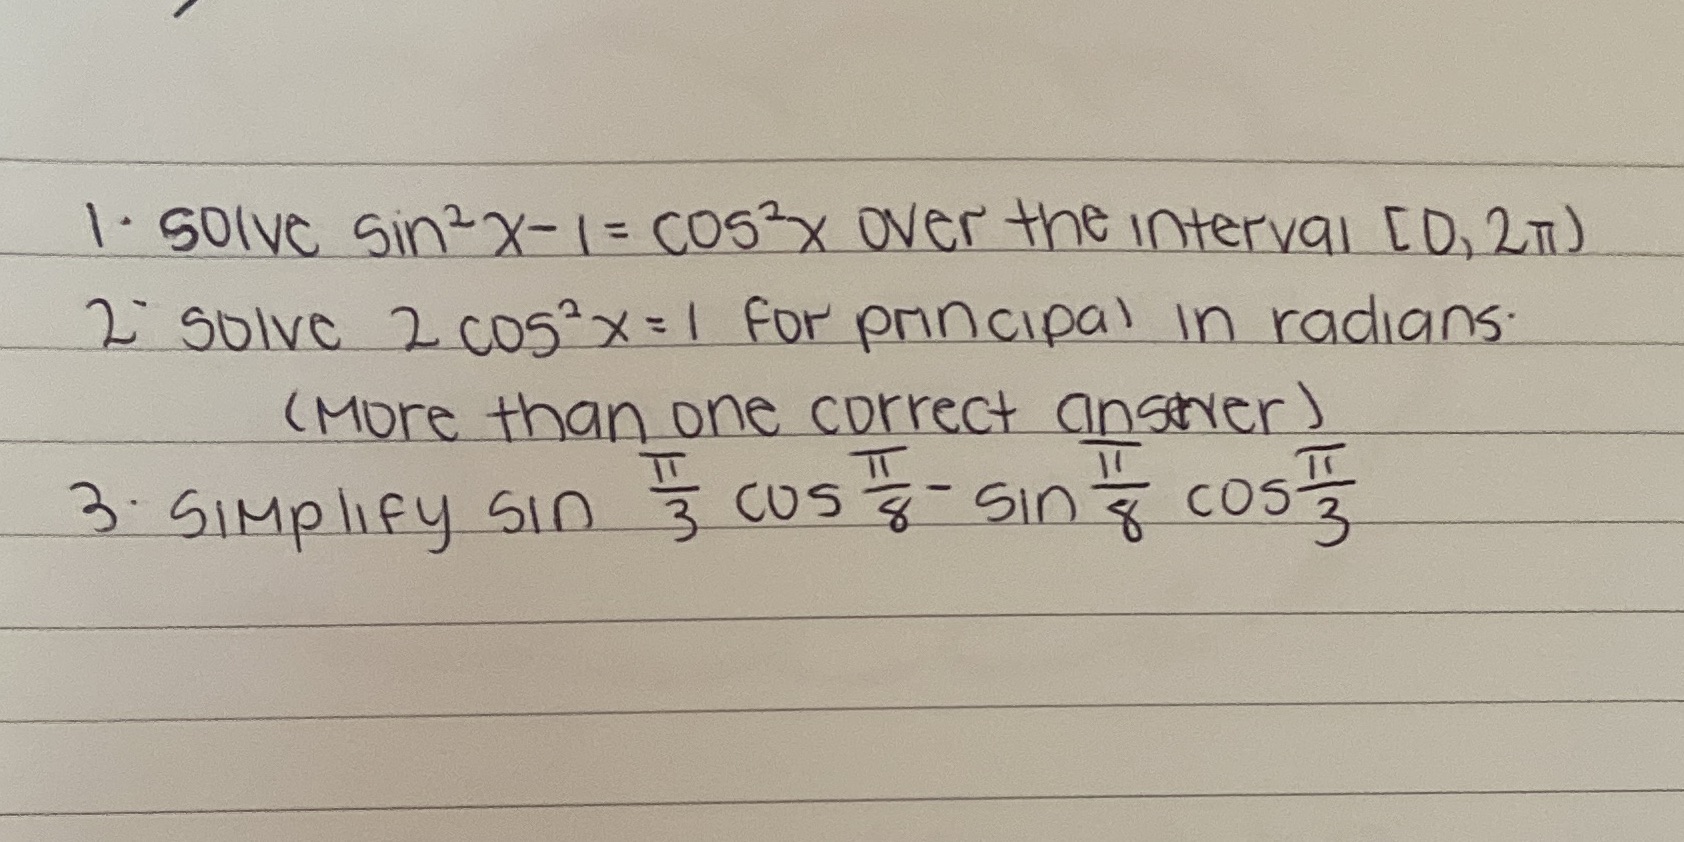 1. solve sin²x-1 = cos²x over the interval [0, 2π)
2. solve 2 cos²x = 1 for principal in radians.
(More than one correct answer)
3. simplify sin π/3 cos π/8 - sin π/8 cos π/3